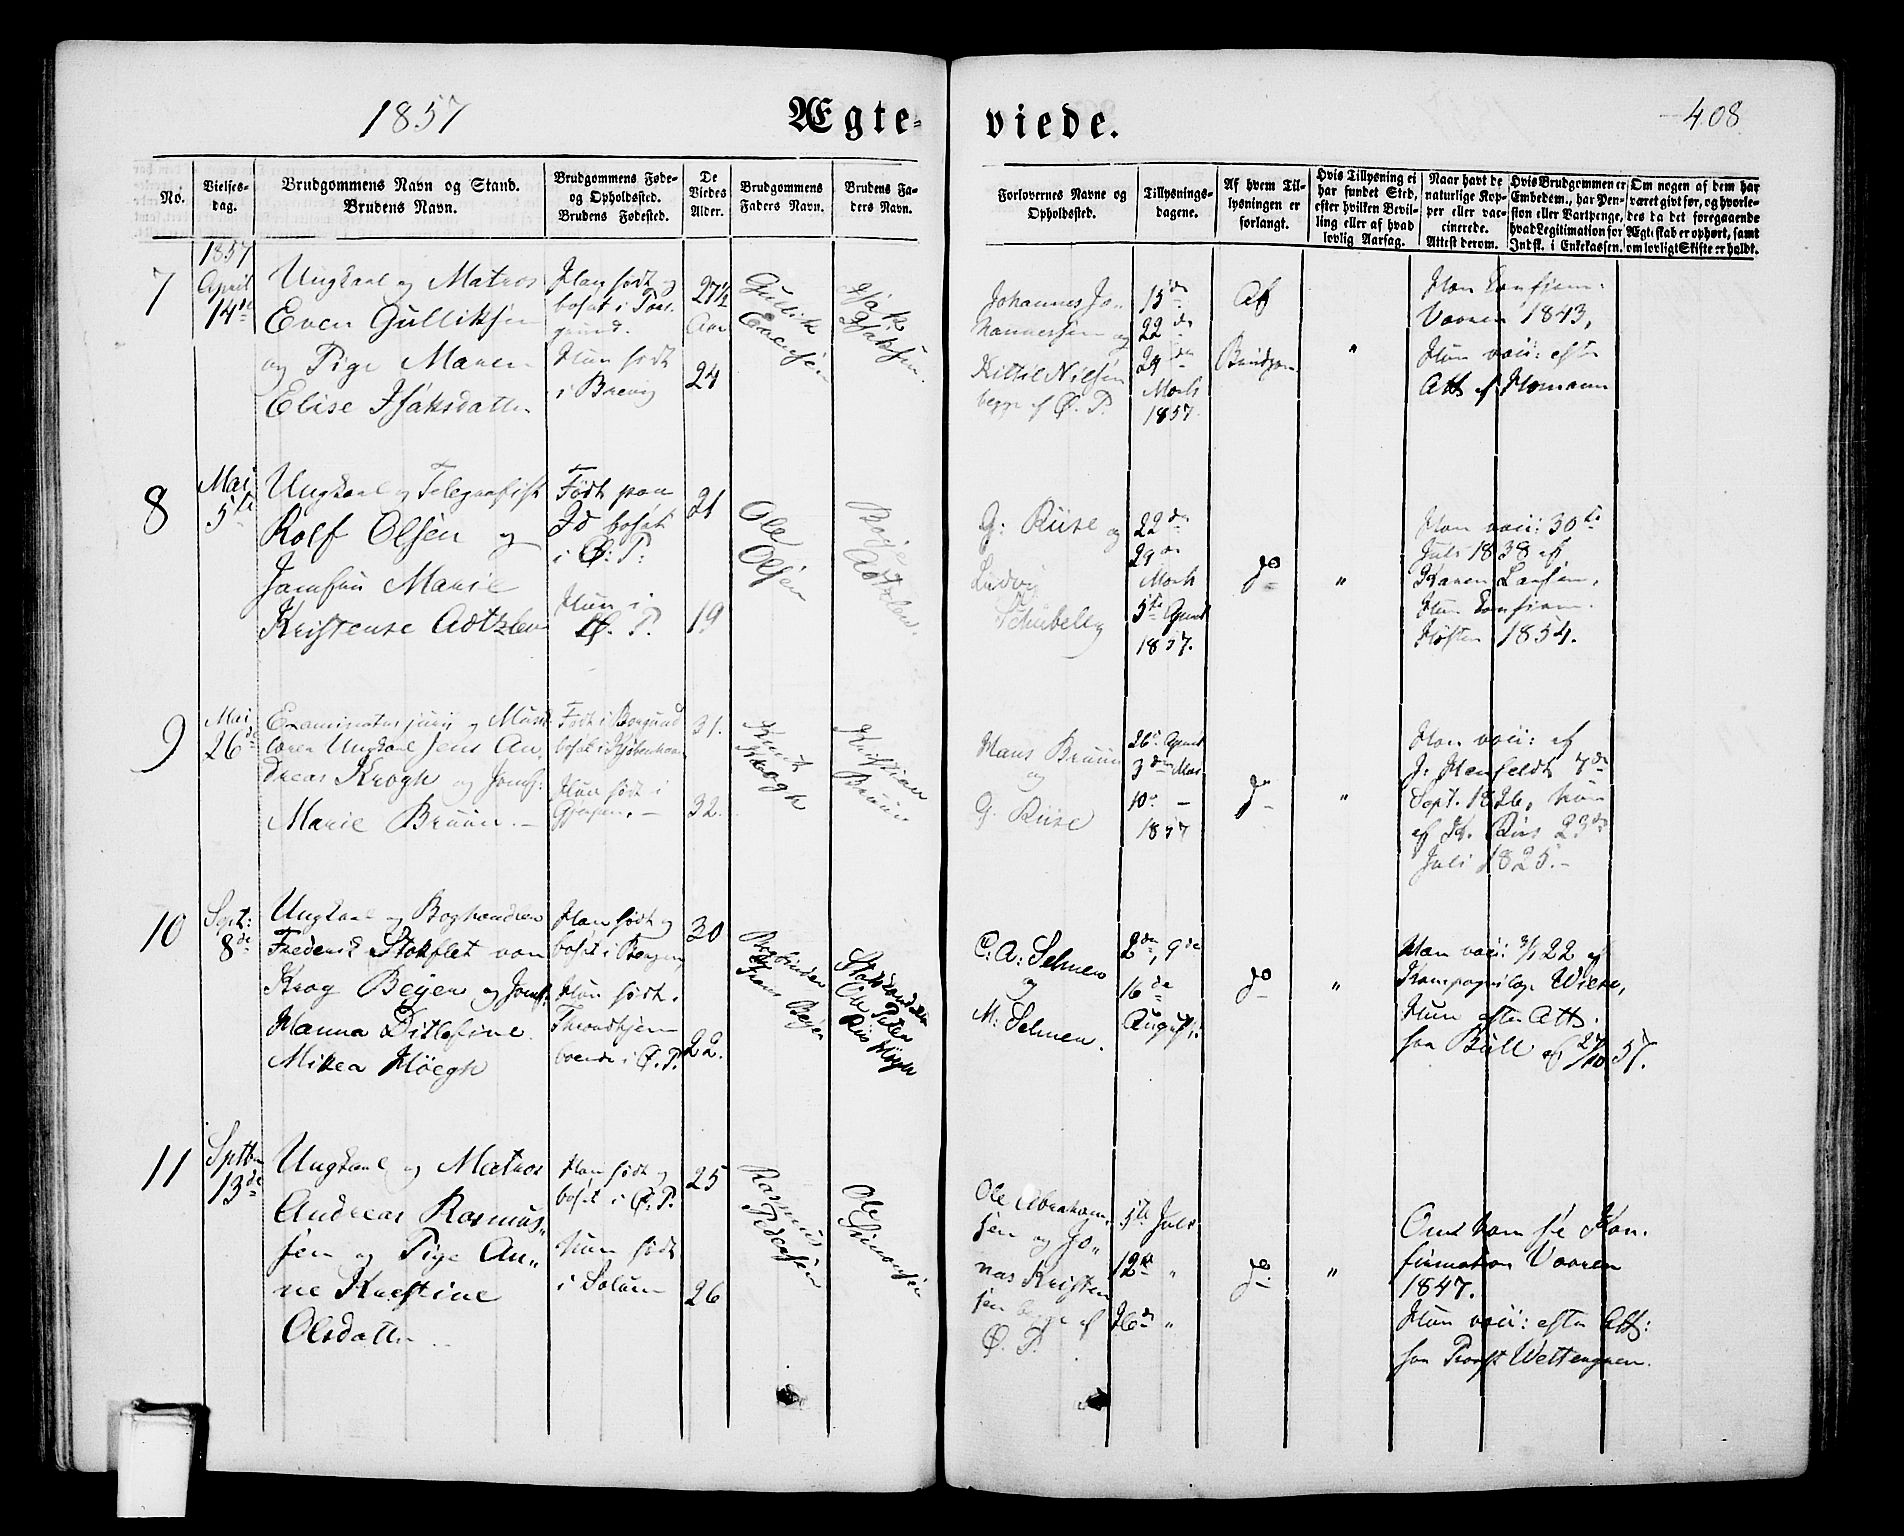 1857
Ægte-
viede.
408
No.
Vielses-
dag.
Brudgommens Navn og Stand.
Brudens Navn.
Brudgommens Føde-
og Opholdssted.
Brudens Fødested.
De
Viedes
Alder.
Brudgommens
Faders Navn.
Brudens Fa-
ders Navn.
Forlovernes Navne og
Opholdssted.
Tillysnings-
dagene.
Af hvem Til-
lysningen er
forlangt.
Hvis Tillysning ei
har fundet Sted,
efter hvilken Bevil-
ling eller af hvad
lovlig Aarsag.
Naar havt de
naturlige Kop-
per eller vac-
cinerede.
Attest derom.
Hvis Brudgommen er
Embedsm., har Pen-
sion eller Vartpenge,
hvad Legitimation for
Indsk. i Enkekassen.
Om nogen af dem har
været givt før, og hvorle-
des da det foregaaende
Ægteskab er ophørt, samt
om lovligt Skifte er holdt.
7
1857
April
14de
Ungkarl og Matros
Even Gulliksen
og Pige Maren
Elise Isaksdatter
Han født og
bosat i Pors-
grund.
Hun født
i Brevig
27½
Aar
24
Gullik
Evensen
Isak
Isaksen.
Johannes Jo-
hannessen og
Kittil Nilsen
begge af Ø. P.
15de
22de
29de
Marts
1857.
Af
Brudgom
"
Han konfirm.
Vaaren 1843,
Hun vacc: efter
Att. af Homann
8
Mai
5te
Ungkarl og Telegrafist
Rolf Olsen og
Jomfru Marie
Kristense Adtzlev
Født paa
bosat
i Ø: P:
Hun i
Ø. P.
21
19
Ole
Olsen
G: Riise og
Ludvig
Schübeler
22de
29de
Marts
5te April
1857.
do
"
Han vacc: 30te
Juli 1838 af
Karen Larsen,
Hun konfirm.
Høsten 1854.
9
Mai
26de
Examinatus juris og Musik-
lærer Ungkarl Jens An-
dreas Krogh og Jomf:
Marie Bruun. —
Født i Borgund
bosat i Kjøbenhavn
Hun født i
Gjerpen. —
31.
32.
Krogh
Kristian
Bruun
Hans Bruun
og
G. Riise
26de April
3de Mai
10de —
1857
do
"
Han vacc: af
J: Henfeldt 7de
Sept. 1826, hun
af H. Riis 23de
Juli 1825. —
10
Sept:
8de
Ungkarl og Boghandler
Frederik Stokflet von
Krog Beyer og Jomf.
Hanna Ditlefine
Mikea Høegh
Han født og
bosat i Bergen,
Hun født i
Throndhjem
boende i Ø. P.
30
22.
Bogbinder
Frans Beyer
Ole Peter
Riis Høegh
C. A: Selmer
og
M: Selmer.
2den, 9de
16de
August.
do
"
Han vacc: 3/7 22 af
Kompagnilæge Wiese,
Hun efter Att.
fra Bull af 27/10 57.
11
Septbr
13de
Ungkarl og Matros
Andreas Rasmus-
sen og Pige An-
ne Kristine
Olsdatter
Han født og
bosat i Ø. P.
Hun født
i Solum
25
26
Rasmus
Pedersen
Ole
Simonsen
Ole Abraham-
sen og Jo-
nas Kristen
sen begge af
Ø. P.
5te Juli
12te "
26de "
do
"
Om ham se Kon-
firmation Vaaren
1847.
Hun vacc: efter Att:
fra Provst Wettergreen.